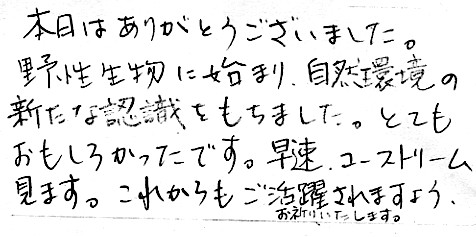 本日はありがとうございました。
野性生物に始まり、自然環境の
新たな認識をもちました。とても
おもしろかったです。早速、ユーストリーム
見ます。これからもご活躍されますよう、
お祈りいたします。